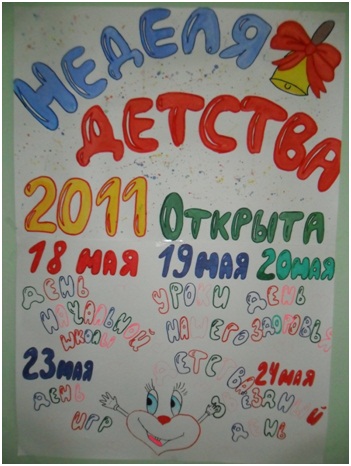 НЕДЕЛЯ
ДЕТСТВА
2011 ОТКРЫТА
18 МАЯ
ДЕНЬ
НАЧАЛЬНОЙ
ШКОЛЫ
19 МАЯ
УРОКИ
НАШЕГО
ДЕТСТВА
20 МАЯ
ДЕНЬ
ЗДОРОВЬЯ
23 МАЯ
ДЕНЬ
ИГР
24 МАЯ
ДЕНЬ